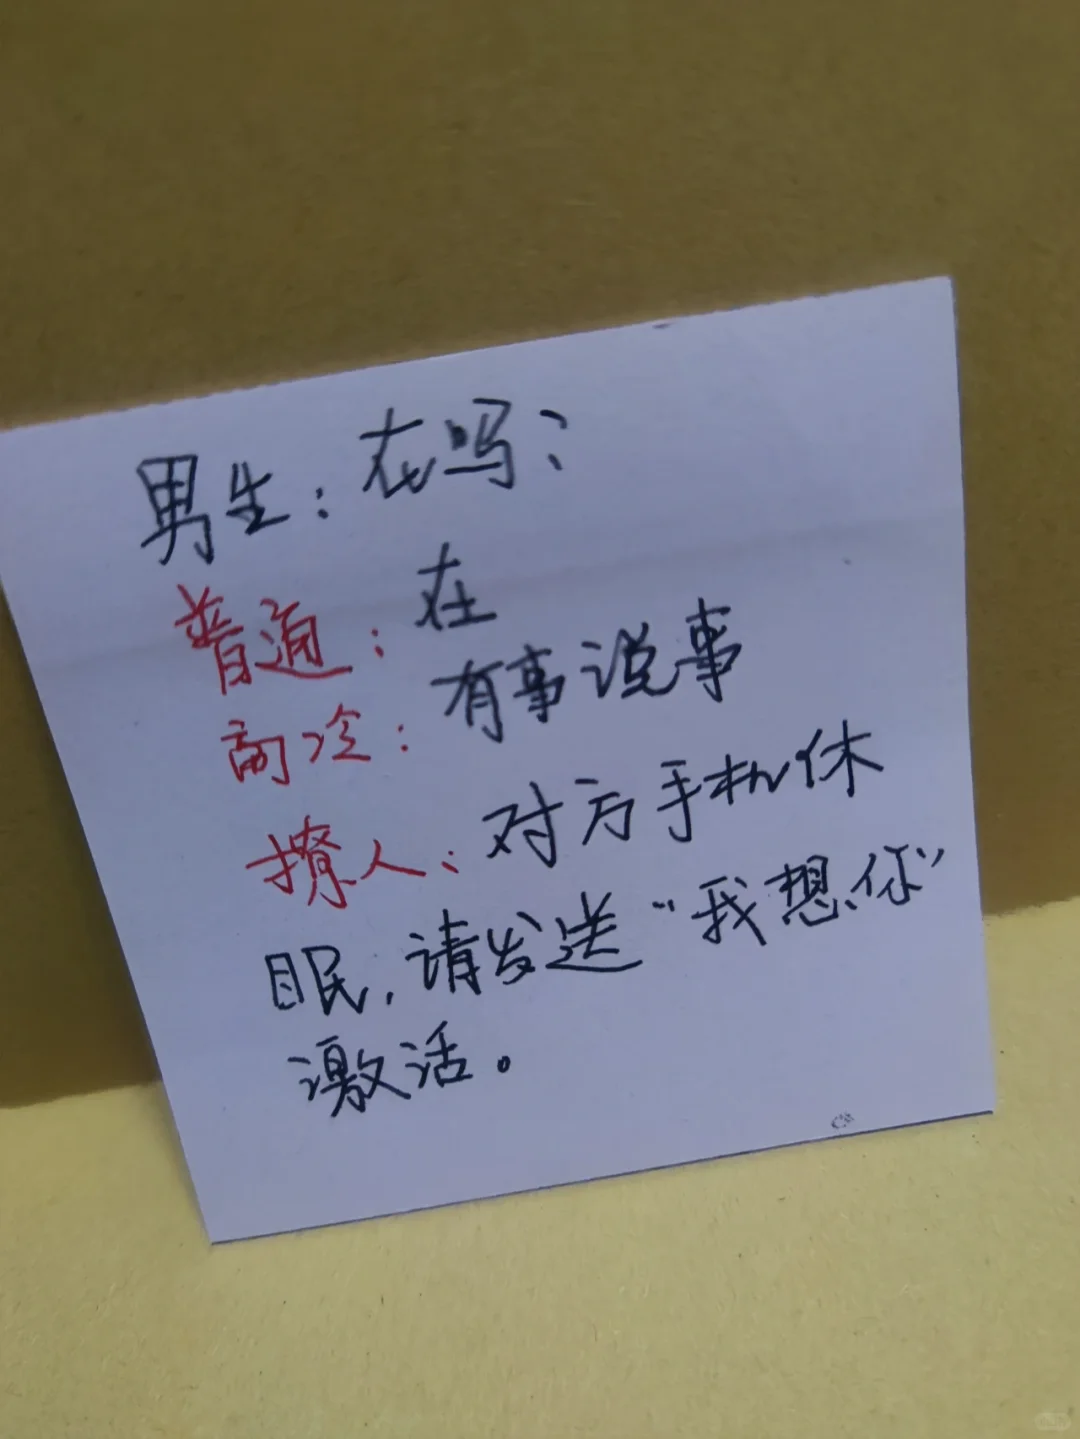 男生：在吗？
普通：在
高冷：有事说事
撩人：对方手机休
眠，请发送“我想你”
激活。